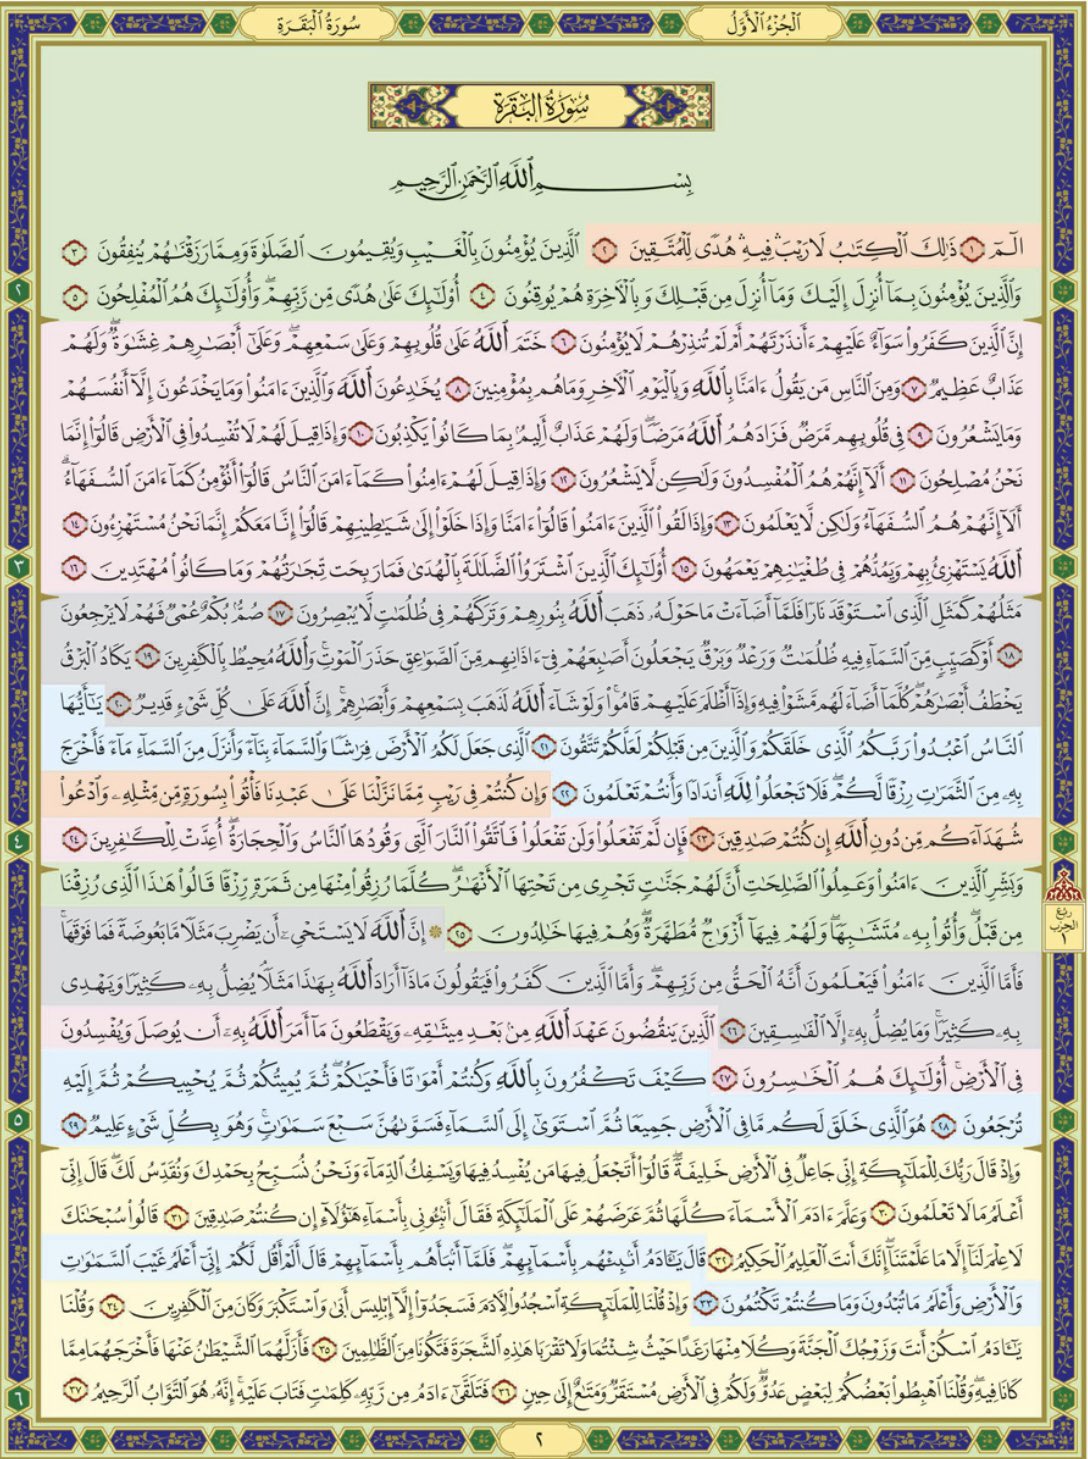 سُورَةُ الْبَقَرَةِ
الْجُزْءُ الْأَوَّلُ
سُورَةُ الْبَقَرَةِ
بِسْمِ ٱللَّهِ ٱلرَّحْمَٰنِ ٱلرَّحِيمِ
الٓمٓ ١ ذَٰلِكَ ٱلْكِتَٰبُ لَا رَيْبَ ۛ فِيهِ ۛ هُدًى لِّلْمُتَّقِينَ ٢ ٱلَّذِينَ يُؤْمِنُونَ بِٱلْغَيْبِ وَيُقِيمُونَ ٱلصَّلَوٰةَ وَمِمَّا رَزَقْنَٰهُمْ يُنفِقُونَ ٣
وَٱلَّذِينَ يُؤْمِنُونَ بِمَآ أُنزِلَ إِلَيْكَ وَمَآ أُنزِلَ مِن قَبْلِكَ وَبِٱلْءَاخِرَةِ هُمْ يُوقِنُونَ ٤ أُو۟لَٰٓئِكَ عَلَىٰ هُدًى مِّن رَّبِّهِمْ ۖ وَأُو۟لَٰٓئِكَ هُمُ ٱلْمُفْلِحُونَ ٥
٢
إِنَّ ٱلَّذِينَ كَفَرُوا۟ سَوَآءٌ عَلَيْهِمْ ءَأَنذَرْتَهُمْ أَمْ لَمْ تُنذِرْهُمْ لَا يُؤْمِنُونَ ٦ خَتَمَ ٱللَّهُ عَلَىٰ قُلُوبِهِمْ وَعَلَىٰ سَمْعِهِمْ ۖ وَعَلَىٰٓ أَبْصَٰرِهِمْ غِشَٰوَةٌ ۖ وَلَهُمْ
عَذَابٌ عَظِيمٌ ٧ وَمِنَ ٱلنَّاسِ مَن يَقُولُ ءَامَنَّا بِٱللَّهِ وَبِٱلْيَوْمِ ٱلْءَاخِرِ وَمَا هُم بِمُؤْمِنِينَ ٨ يُخَٰدِعُونَ ٱللَّهَ وَٱلَّذِينَ ءَامَنُوا۟ وَمَا يَخْدَعُونَ إِلَّآ أَنفُسَهُمْ
وَمَا يَشْعُرُونَ ٩ فِى قُلُوبِهِم مَّرَضٌ فَزَادَهُمُ ٱللَّهُ مَرَضًا ۖ وَلَهُمْ عَذَابٌ أَلِيمٌۢ بِمَا كَانُوا۟ يَكْذِبُونَ ١٠ وَإِذَا قِيلَ لَهُمْ لَا تُفْسِدُوا۟ فِى ٱلْأَرْضِ قَالُوٓا۟ إِنَّمَا
نَحْنُ مُصْلِحُونَ ١١ أَلَآ إِنَّهُمْ هُمُ ٱلْمُفْسِدُونَ وَلَٰكِن لَّا يَشْعُرُونَ ١٢ وَإِذَا قِيلَ لَهُمْ ءَامِنُوا۟ كَمَآ ءَامَنَ ٱلنَّاسُ قَالُوٓا۟ أَنُؤْمِنُ كَمَآ ءَامَنَ ٱلسُّفَهَآءُ ۗ
أَلَآ إِنَّهُمْ هُمُ ٱلسُّفَهَآءُ وَلَٰكِن لَّا يَعْلَمُونَ ١٣ وَإِذَا لَقُوا۟ ٱلَّذِينَ ءَامَنُوا۟ قَالُوٓا۟ ءَامَنَّا وَإِذَا خَلَوْا۟ إِلَىٰ شَيَٰطِينِهِمْ قَالُوٓا۟ إِنَّا مَعَكُمْ إِنَّمَا نَحْنُ مُسْتَهْزِءُونَ ١٤
ٱللَّهُ يَسْتَهْزِئُ بِهِمْ وَيَمُدُّهُمْ فِى طُغْيَٰنِهِمْ يَعْمَهُونَ ١٥ أُو۟لَٰٓئِكَ ٱلَّذِينَ ٱشْتَرَوُا۟ ٱلضَّلَٰلَةَ بِٱلْهُدَىٰ فَمَا رَبِحَت تِّجَٰرَتُهُمْ وَمَا كَانُوا۟ مُهْتَدِينَ ١٦
٣
مَثَلُهُمْ كَمَثَلِ ٱلَّذِى ٱسْتَوْقَدَ نَارًا فَلَمَّآ أَضَآءَتْ مَا حَوْلَهُۥ ذَهَبَ ٱللَّهُ بِنُورِهِمْ وَتَرَكَهُمْ فِى ظُلُمَٰتٍ لَّا يُبْصِرُونَ ١٧ صُمٌّۢ بُكْمٌ عُمْىٌ فَهُمْ لَا يَرْجِعُونَ
١٨ أَوْ كَصَيِّبٍ مِّنَ ٱلسَّمَآءِ فِيهِ ظُلُمَٰتٌ وَرَعْدٌ وَبَرْقٌ يَجْعَلُونَ أَصَٰبِعَهُمْ فِىٓ ءَاذَانِهِم مِّنَ ٱلصَّوَٰعِقِ حَذَرَ ٱلْمَوْتِ ۚ وَٱللَّهُ مُحِيطٌۢ بِٱلْكَٰفِرِينَ ١٩ يَكَادُ ٱلْبَرْقُ
يَخْطَفُ أَبْصَٰرَهُمْ ۖ كُلَّمَآ أَضَآءَ لَهُم مَّشَوْا۟ فِيهِ وَإِذَآ أَظْلَمَ عَلَيْهِمْ قَامُوا۟ ۚ وَلَوْ شَآءَ ٱللَّهُ لَذَهَبَ بِسَمْعِهِمْ وَأَبْصَٰرِهِمْ ۚ إِنَّ ٱللَّهَ عَلَىٰ كُلِّ شَىْءٍ قَدِيرٌ ٢٠ يَٰٓأَيُّهَا
ٱلنَّاسُ ٱعْبُدُوا۟ رَبَّكُمُ ٱلَّذِى خَلَقَكُمْ وَٱلَّذِينَ مِن قَبْلِكُمْ لَعَلَّكُمْ تَتَّقُونَ ٢١ ٱلَّذِى جَعَلَ لَكُمُ ٱلْأَرْضَ فِرَٰشًا وَٱلسَّمَآءَ بِنَآءً وَأَنزَلَ مِنَ ٱلسَّمَآءِ مَآءً فَأَخْرَجَ
بِهِۦ مِنَ ٱلثَّمَرَٰتِ رِزْقًا لَّكُمْ ۖ فَلَا تَجْعَلُوا۟ لِلَّهِ أَندَادًا وَأَنتُمْ تَعْلَمُونَ ٢٢ وَإِن كُنتُمْ فِى رَيْبٍ مِّمَّا نَزَّلْنَا عَلَىٰ عَبْدِنَا فَأْتُوا۟ بِسُورَةٍ مِّن مِّثْلِهِۦ وَٱدْعُوا۟
شُهَدَآءَكُم مِّن دُونِ ٱللَّهِ إِن كُنتُمْ صَٰدِقِينَ ٢٣ فَإِن لَّمْ تَفْعَلُوا۟ وَلَن تَفْعَلُوا۟ فَٱتَّقُوا۟ ٱلنَّارَ ٱلَّتِى وَقُودُهَا ٱلنَّاسُ وَٱلْحِجَارَةُ ۖ أُعِدَّتْ لِلْكَٰفِرِينَ ٢٤
٤
وَبَشِّرِ ٱلَّذِينَ ءَامَنُوا۟ وَعَمِلُوا۟ ٱلصَّٰلِحَٰتِ أَنَّ لَهُمْ جَنَّٰتٍ تَجْرِى مِن تَحْتِهَا ٱلْأَنْهَٰرُ ۖ كُلَّمَا رُزِقُوا۟ مِنْهَا مِن ثَمَرَةٍ رِّزْقًا قَالُوا۟ هَٰذَا ٱلَّذِى رُزِقْنَا
مِن قَبْلُ ۖ وَأُتُوا۟ بِهِۦ مُتَشَٰبِهًا ۖ وَلَهُمْ فِيهَآ أَزْوَٰجٌ مُّطَهَّرَةٌ ۖ وَهُمْ فِيهَا خَٰلِدُونَ ٢٥ ۞ إِنَّ ٱللَّهَ لَا يَسْتَحْىِۦٓ أَن يَضْرِبَ مَثَلًا مَّا بَعُوضَةً فَمَا فَوْقَهَا ۚ
ربع
الحزب
١
فَأَمَّا ٱلَّذِينَ ءَامَنُوا۟ فَيَعْلَمُونَ أَنَّهُ ٱلْحَقُّ مِن رَّبِّهِمْ ۖ وَأَمَّا ٱلَّذِينَ كَفَرُوا۟ فَيَقُولُونَ مَاذَآ أَرَادَ ٱللَّهُ بِهَٰذَا مَثَلًا ۘ يُضِلُّ بِهِۦ كَثِيرًا وَيَهْدِى
بِهِۦ كَثِيرًا ۚ وَمَا يُضِلُّ بِهِۦٓ إِلَّا ٱلْفَٰسِقِينَ ٢٦ ٱلَّذِينَ يَنقُضُونَ عَهْدَ ٱللَّهِ مِنۢ بَعْدِ مِيثَٰقِهِۦ وَيَقْطَعُونَ مَآ أَمَرَ ٱللَّهُ بِهِۦٓ أَن يُوصَلَ وَيُفْسِدُونَ
فِى ٱلْأَرْضِ ۚ أُو۟لَٰٓئِكَ هُمُ ٱلْخَٰسِرُونَ ٢٧ كَيْفَ تَكْفُرُونَ بِٱللَّهِ وَكُنتُمْ أَمْوَٰتًا فَأَحْيَٰكُمْ ۖ ثُمَّ يُمِيتُكُمْ ثُمَّ يُحْيِيكُمْ ثُمَّ إِلَيْهِ
تُرْجَعُونَ ٢٨ هُوَ ٱلَّذِى خَلَقَ لَكُم مَّا فِى ٱلْأَرْضِ جَمِيعًا ثُمَّ ٱسْتَوَىٰٓ إِلَى ٱلسَّمَآءِ فَسَوَّىٰهُنَّ سَبْعَ سَمَٰوَٰتٍ ۚ وَهُوَ بِكُلِّ شَىْءٍ عَلِيمٌ ٢٩
٥
وَإِذْ قَالَ رَبُّكَ لِلْمَلَٰٓئِكَةِ إِنِّى جَاعِلٌ فِى ٱلْأَرْضِ خَلِيفَةً ۖ قَالُوٓا۟ أَتَجْعَلُ فِيهَا مَن يُفْسِدُ فِيهَا وَيَسْفِكُ ٱلدِّمَآءَ وَنَحْنُ نُسَبِّحُ بِحَمْدِكَ وَنُقَدِّسُ لَكَ ۖ قَالَ إِنِّىٓ
أَعْلَمُ مَا لَا تَعْلَمُونَ ٣٠ وَعَلَّمَ ءَادَمَ ٱلْأَسْمَآءَ كُلَّهَا ثُمَّ عَرَضَهُمْ عَلَى ٱلْمَلَٰٓئِكَةِ فَقَالَ أَنۢبِـُٔونِى بِأَسْمَآءِ هَٰٓؤُلَآءِ إِن كُنتُمْ صَٰدِقِينَ ٣١ قَالُوا۟ سُبْحَٰنَكَ
لَا عِلْمَ لَنَآ إِلَّا مَا عَلَّمْتَنَآ ۖ إِنَّكَ أَنتَ ٱلْعَلِيمُ ٱلْحَكِيمُ ٣٢ قَالَ يَٰٓـَٔادَمُ أَنۢبِئْهُم بِأَسْمَآئِهِمْ ۖ فَلَمَّآ أَنۢبَأَهُم بِأَسْمَآئِهِمْ قَالَ أَلَمْ أَقُل لَّكُمْ إِنِّىٓ أَعْلَمُ غَيْبَ ٱلسَّمَٰوَٰتِ
وَٱلْأَرْضِ وَأَعْلَمُ مَا تُبْدُونَ وَمَا كُنتُمْ تَكْتُمُونَ ٣٣ وَإِذْ قُلْنَا لِلْمَلَٰٓئِكَةِ ٱسْجُدُوا۟ لِءَادَمَ فَسَجَدُوٓا۟ إِلَّآ إِبْلِيسَ أَبَىٰ وَٱسْتَكْبَرَ وَكَانَ مِنَ ٱلْكَٰفِرِينَ ٣٤ وَقُلْنَا
يَٰٓـَٔادَمُ ٱسْكُنْ أَنتَ وَزَوْجُكَ ٱلْجَنَّةَ وَكُلَا مِنْهَا رَغَدًا حَيْثُ شِئْتُمَا وَلَا تَقْرَبَا هَٰذِهِ ٱلشَّجَرَةَ فَتَكُونَا مِنَ ٱلظَّٰلِمِينَ ٣٥ فَأَزَلَّهُمَا ٱلشَّيْطَٰنُ عَنْهَا فَأَخْرَجَهُمَا مِمَّا
كَانَا فِيهِ ۖ وَقُلْنَا ٱهْبِطُوا۟ بَعْضُكُمْ لِبَعْضٍ عَدُوٌّ ۖ وَلَكُمْ فِى ٱلْأَرْضِ مُسْتَقَرٌّ وَمَتَٰعٌ إِلَىٰ حِينٍ ٣٦ فَتَلَقَّىٰٓ ءَادَمُ مِن رَّبِّهِۦ كَلِمَٰتٍ فَتَابَ عَلَيْهِ ۚ إِنَّهُۥ هُوَ ٱلتَّوَّابُ ٱلرَّحِيمُ ٣٧
٦
٢